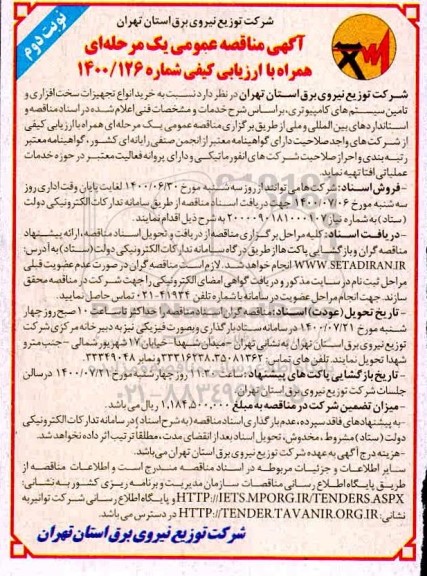 شرکت توزیع نیروی برق استان تهران
نوبت دوم
آگهی مناقصه عمومی یک مرحله‌ای
همراه با ارزیابی کیفی شماره ۱۴۰۰/۱۲۶
شرکت توزیع نیروی برق استان تهران در نظر دارد نسبت به خرید انواع تجهیزات سخت افزاری و
تامین سیستم های کامپیوتری، براساس شرح خدمات و مشخصات فنی اعلام شده در اسناد مناقصه و
استانداردهای بین المللی و ملی از طریق برگزاری مناقصه عمومی یک مرحله‌ای همراه با ارزیابی کیفی
از شرکت های واجد صلاحیت دارای گواهینامه معتبر از انجمن صنفی رایانه ای کشور، گواهینامه معتبر
رتبه بندی و احراز صلاحیت شرکت های انفورماتیکی و دارای پروانه فعالیت معتبر در حوزه خدمات
عملیاتی افتا تهیه نماید.
-فروش اسناد: شرکت ها می توانند از روز سه شنبه مورخ ۱۴۰۰/۰۶/۳۰ لغایت پایان وقت اداری روز
سه شنبه مورخ ۱۴۰۰/۰۷/۰۶ جهت دریافت اسناد مناقصه از طریق سامانه تدارکات الکترونیکی دولت
(ستاد) به شماره نیاز ۲۰۰۰۰۹۰۱۸۱۰۰۰۱۰۷ به شرح ذیل اقدام نمایند.
-دریافت اسناد: کلیه مراحل برگزاری مناقصه از دریافت و تحویل اسناد مناقصه، ارائه پیشنهاد
مناقصه گران و بازگشایی پاکت ها از طریق درگاه سامانه تدارکات الکترونیکی دولت (ستاد) به آدرس:
WWW.SETADIRAN.IR انجام خواهد شد. لازم است مناقصه گران در صورت عدم عضویت قبلی
مراحل ثبت نام در سایت مذکور و دریافت گواهی امضای الکترونیکی را جهت شرکت در مناقصه محقق
سازند. جهت انجام مراحل عضویت در سامانه با شماره تلفن ۴۱۹۳۴-۰۲۱ تماس حاصل نمایید.
-تاریخ تحویل (عودت) اسناد: مناقصه گران اسناد مناقصه را حداکثر تا ساعت ۱۰ صبح روز چهار
شنبه مورخ ۱۴۰۰/۰۷/۲۱ در سامانه ستاد بارگذاری و بصورت فیزیکی نیز به دبیرخانه مرکزی شرکت
توزیع نیروی برق استان تهران به نشانی تهران-میدان شهدا-خیابان ۱۷ شهریور شمالی-جنب مترو
شهدا تحویل نمایند. تلفن های تماس: ۳۵۰۸۱۳۶۲، ۳۳۳۱۶۲۳۸ و نمابر ۳۳۳۴۹۰۴۸
-تاریخ بازگشایی پاکت های پیشنهاد: ساعت ۱۱:۳۰ روز چهارشنبه مورخ ۱۴۰۰/۰۷/۲۱ در سالن
جلسات شرکت توزیع نیروی برق استان تهران
-میزان تضمین شرکت در مناقصه به مبلغ ۱,۱۸۴,۵۰۰,۰۰۰ ریال می باشد.
-به پیشنهادهای فاقد سپرده، عدم بارگذاری اسناد مناقصه (به شرح اسناد) در سامانه تدارکات الکترونیکی
دولت (ستاد) مشروط، مخدوش، تحویل اسناد بعد از انقضای مدت، مطلقا ترتیب اثر داده نخواهد شد.
-هزینه درج آگهی به عهده شرکت توزیع نیروی برق استان تهران می باشد.
سایر اطلاعات و جزئیات مربوطه در اسناد مناقصه مندرج است و اطلاعات مناقصه از
طریق پایگاه اطلاع رسانی مناقصات سازمان مدیریت و برنامه ریزی کشور به نشانی:
HTTP://IETS.MPORG.IR/TENDERS.ASPX و پایگاه اطلاع رسانی شرکت توانیر به
نشانی: HTTP://TENDER.TAVANIR.ORG.IR در دسترس می باشد.
شرکت توزیع نیروی برق استان تهران